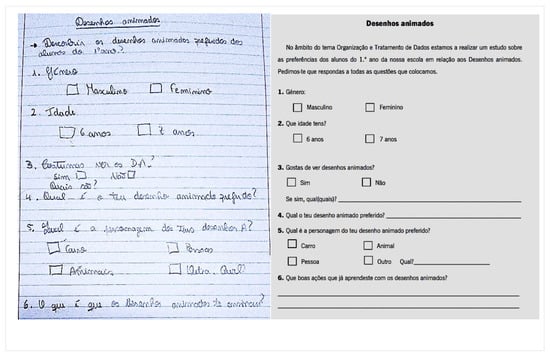 Desenhos animados
→ Descobrir os desenhos animados preferidos dos
alunos do 1º ano?
1. Género
Masculino Feminino
2. Idade
6 anos 7 anos
3. Costumas ver os D.A.?
Sim Não
Quais são?
4. Qual é o teu desenho animado prefido?
5. Qual é a personagem dos teus desenhos A?
Carro Pessoas
Animais Outra. Qual?
6. O que é que os Desenhos animados te ensinam?
Desenhos animados
No âmbito do tema Organização e Tratamento de Dados estamos a realizar um estudo sobre
as preferências dos alunos do 1.º ano da nossa escola em relação aos Desenhos animados.
Pedimos-te que respondas a todas as questões que colocamos.
1. Género:
Masculino Feminino
2. Que idade tens?
6 anos 7 anos
3. Gostas de ver desenhos animados?
Sim Não
Se sim, qual(quais)?
4. Qual o teu desenho animado preferido?
5. Qual é a personagem do teu desenho animado preferido?
Carro Animal
Pessoa Outro Qual?
6. Que boas ações que já aprendeste com os desenhos animados?